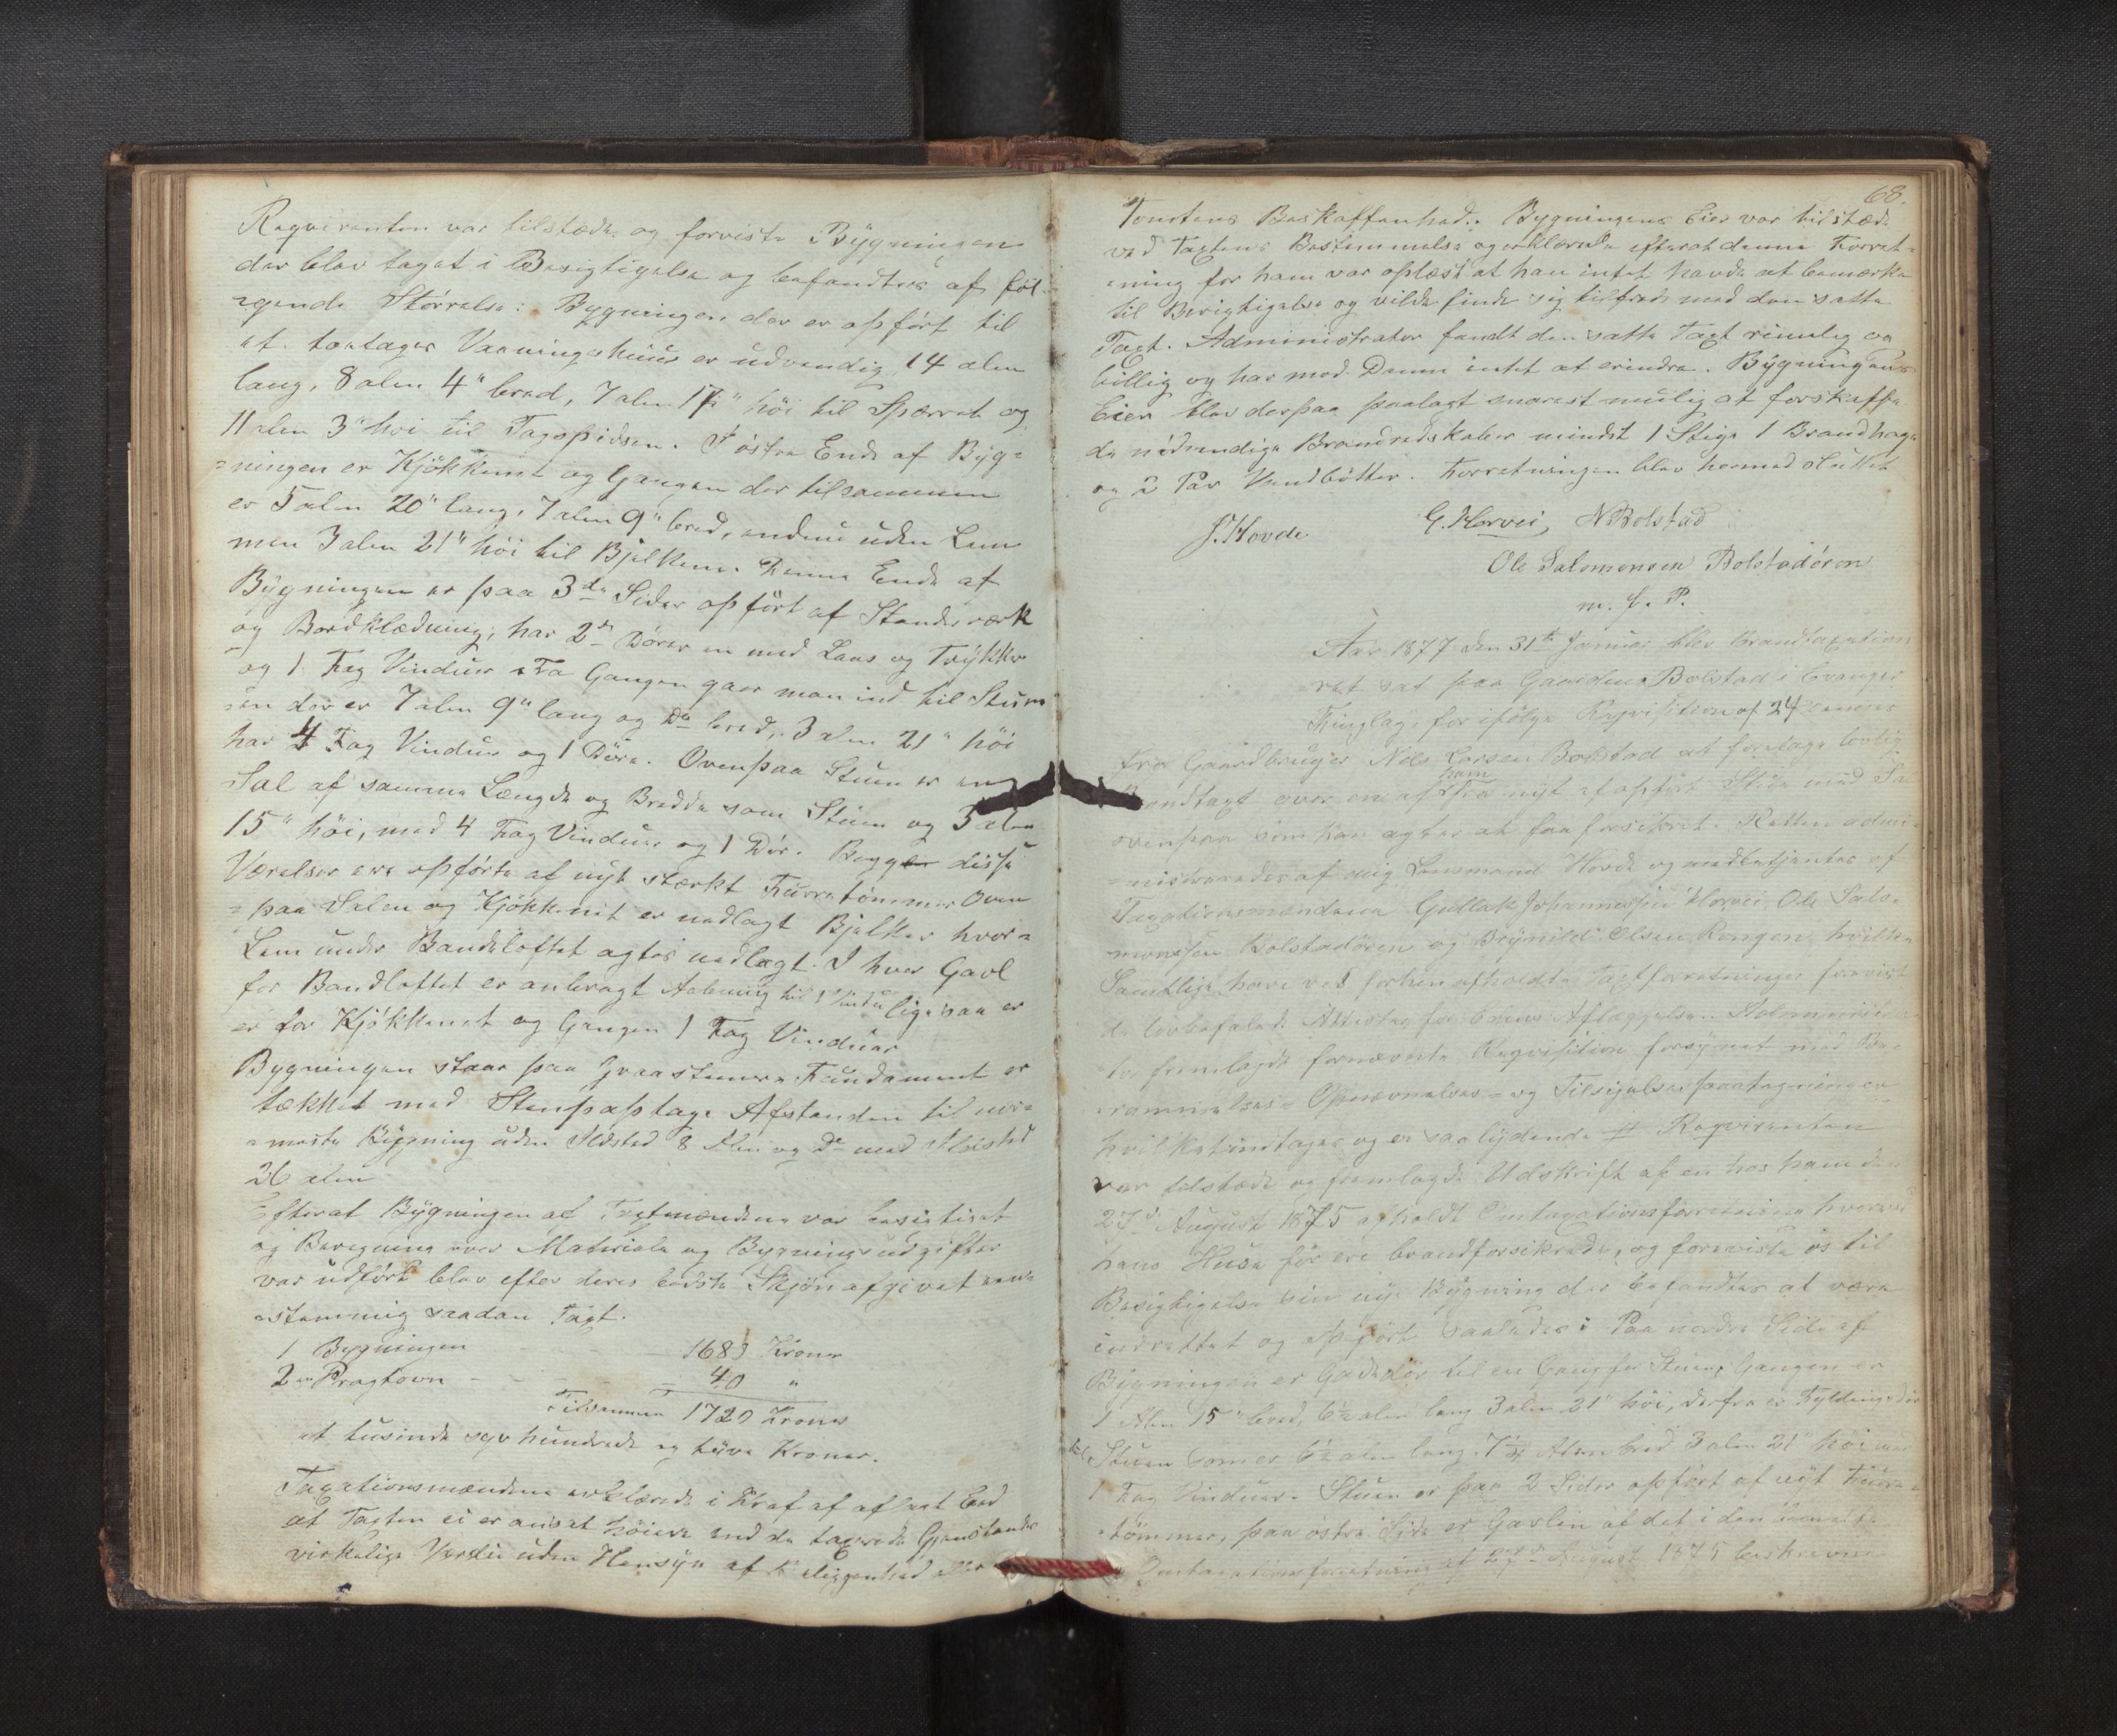 Reqvirenten var tilstæde og foreviste Bygningen
der blev taget i Besigtigelse og befandtes af föl-
gende Störrelse: Bygningen der er opfört til
et toetages Vaaningshuus er udvendig 14 alen
lang, 8 alen 4" bred, 7 alen 17" höi til Sperret og
11 alen 3" höi til Tagspidsen. I östre Ende af Byg-
ningen er Kjökkenet og Gangen der tilsammen
er 5 alen 20" lang, 7 alen 9" bred, endnu uden Lem
men 3 alen 21" höi til Bjelken. Denne Ende af
Bygningen er paa 3de Sider opfört af Standeværk
og Bordklædning, har 2de Dörer en med Laas og Trykker
og 1 Fag Vinduer. Fra Gangen gaar man ind til Stuen
en der er 7 alen 9" lang og Do bred, 3 alen 21" höi
har 4 Fag Vinduer og 1 Döre. Ovenpaa Stuen er en
Sal af samme Længde og Bredde som Stuen og 3 alen
15" höi, med 4 Fag Vinduer og 1 Dör. Begge disse
Værelser ere opförte af nyt stærkt Furretömmer Oven
paa Salen og Kjökkenet er nedlagt Bjelker hvor-
Lem under Bandeloftet agtes nedlagt. I hver Gavl
for Bandloftet er anbragt Aabning til 1 Vindu ligesaa er
er for Kjökkenet og Gangen 1 Fag Vinduer
Bygningen staar paa Graasteens Fundament er
tækket med Stenpaptag. Afstanden til nær-
meste Bygning uden Ildsted 8 Alen og Do med Ildsted
26 alen
Efterat Bygningen af Taxtmændene var besigtiget
og Beregning over Materiale og Bygningsudgifter
var udfört blev efter deres bedste Skjön afgivet een-
stemmig saadan Taxt.
1 Bygningen - - - 1680 Kroner
2 en Pragtovn - - - 40 "
Tilsammen 1720 Kroner
et tusinde syv hundrede og tyve Kroner.
Taxationsmændene erklærede i Kraf af aflagt Eed
at Taxten ei er ansat höiere end de taxerede Gjenstandes
virkelige Værdie uden Hensyn af Beliggenhed eller
68.
Tomtens Beskaffenhed. Bygningens Eier var tilstæde
ved Taxtens Bestemmelse og erklærede efterat denne Forret-
ning for ham var oplæst at han intet havde at bemærke
til Berigtigelse og vilde finde sig tilfreds med den satte
Taxt. Administrator fandt den satte Taxt rimelig og
billig og har mod Denne intet at erindre. Bygningens
Eier blev derpaa paalagt snarest mulig at forskaffe
de nödvendige Brandredskaber mindst 1 Stige 1 Brandhage
og 2 Par Vandbötter. Forretningen blev hermed sluttet
J. Hovde G. Horvei, N Bolstad
Ole Salomonsen Bolstadören
m. p. P.
Aar 1877 den 31te Januar blev Brandtaxation
ret sat paa Gaarden Bolstad i Evanger
Thinglag, for ifölge Reqvisition af 24
fra Gaardbruger Nils Larsen Bolstad at foretage lovlig
Brandtaxt over en af ham nyt opfört Stue med Sal
ovenpaa som han agter at faa forsikret. Retten admi-
nistreredes af mig Lensmand Hovde og medbetjentes af
Taxationsmændene Gullak Johannessen Horvei, Ole Salo-
monsen Bolstadören og Brynild Olsen Rongen hvilke
Samtlige have ved forhen afholdte Taxtforretninger forevist
de lovbefalede Attester for Edens Aflæggelse. Administra-
tor fremlagde fornævnte Reqvisition forsynet med Be-
rammelses- Opnævnelses- og Tilsigelsespaategninger
hvilket indtages og er saa lydende # Reqvirenten
var tilstæde og fremlagde Udskrift af en hos ham den
27de August 1875 afholdt Omtaxationsforretning hvorved
hans Huse för ere brandforsikrede, og foreviste os til
Besigtigelse sin nye Bygning der befandtes at være
indrettet og opfört saaledes: Paa nordre Side af
Bygningen er Gadedör til en Gang for Stuen, Gangen er
1 Alen 15" bred, 6½ alen lang 3 alen 21" höi, derfra er Fyldingsdör
til Stuen som er 6½ alen lang. 7¼ Alen bred 3 alen 21" höi med
1 Fag Vinduer. Stuen er paa 2 Sider opfört af nyt Furre-
tömmer, paa östre Side er Gavlen af det i den
Omtaxationsforretning af 27de August 1875 beskrevne